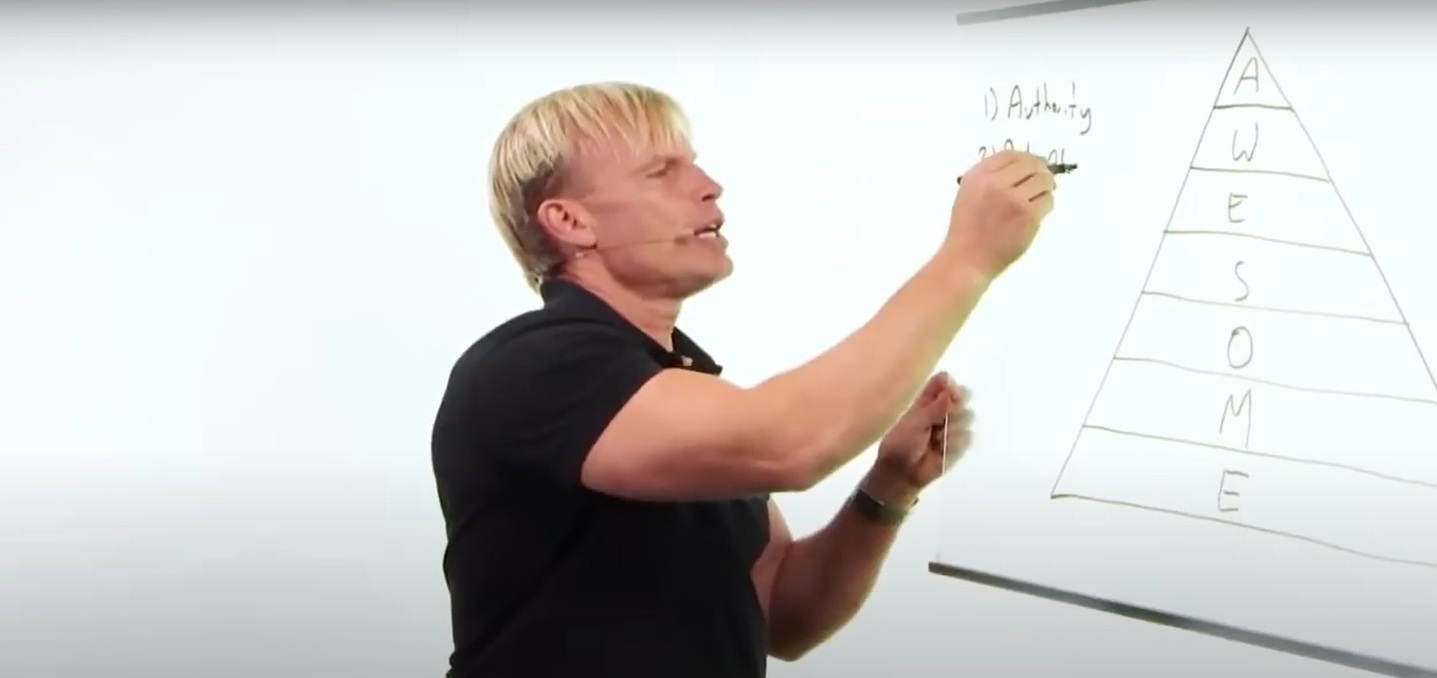 1) Authority
2)
A
W
E
S
O
M
E